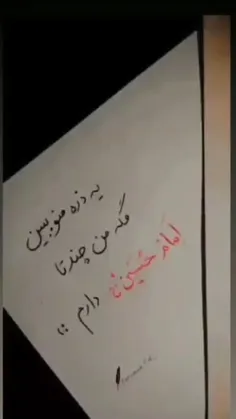 یه ذره منو ببین
مگه من چندتا
امام حسین ع دارم :)